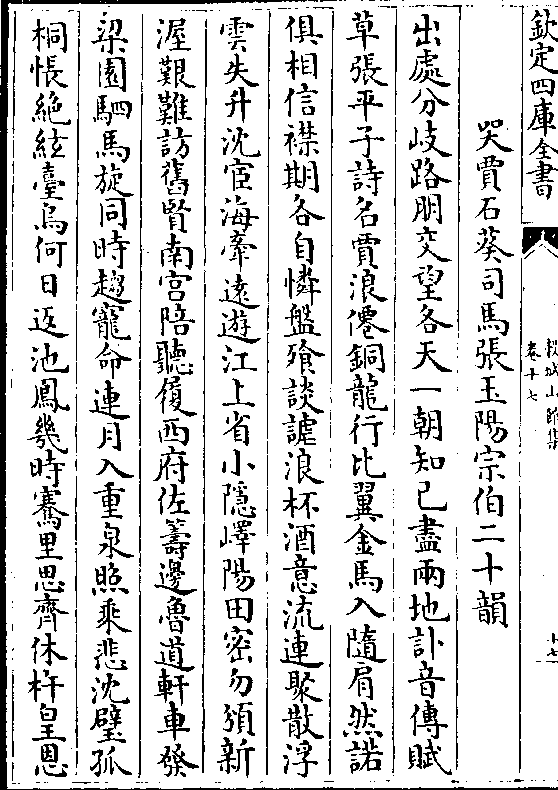 欽定四庫全書
卷十七
哭賈石葵司馬張玉陽宗伯二十韻
出處分岐路朋交望各天一朝知已盡兩地訃音傳賦
草張平子詩名賈浪僊銅龍行比翼金馬入隨肩然諾
俱相信襟期各自憐盤飱談謔浪杯酒意流連聚散浮
雲失升沈宦海牽遠遊江上省小隱嶧陽田密勿頒新
渥艱難訪舊賢南宫陪聽履西府佐籌邊魯道軒車發
梁園駟馬旋同時趨寵命連月入重泉照乘悲沈璧孤
桐悵絶絃臺烏何日返池鳳幾時騫里思齊休杵皇恩